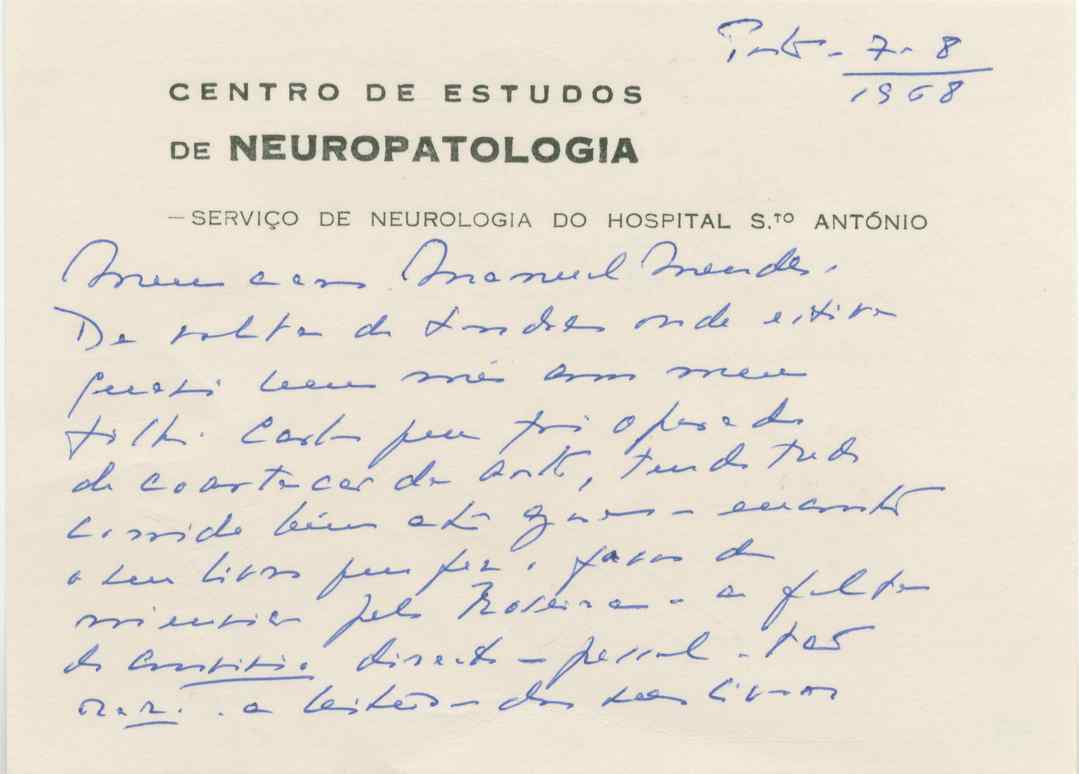 Porto - 7 - 8
1968
CENTRO DE ESTUDOS
DE NEUROPATOLOGIA
— SERVIÇO DE NEUROLOGIA DO HOSPITAL S.TO ANTÓNIO
Meu caro Manuel Mendes.
De volta de Londres onde estive
quasi um mês com meu
filho Carlos que foi operado
de coartação da aorta, tendo tudo
corrido bem até agora - encontro
o seu livro que fez o favor de
m'enviar pelo Roseira - a falta
do convivio directo - pessoal - tão
raro. a leitura dos seus livros